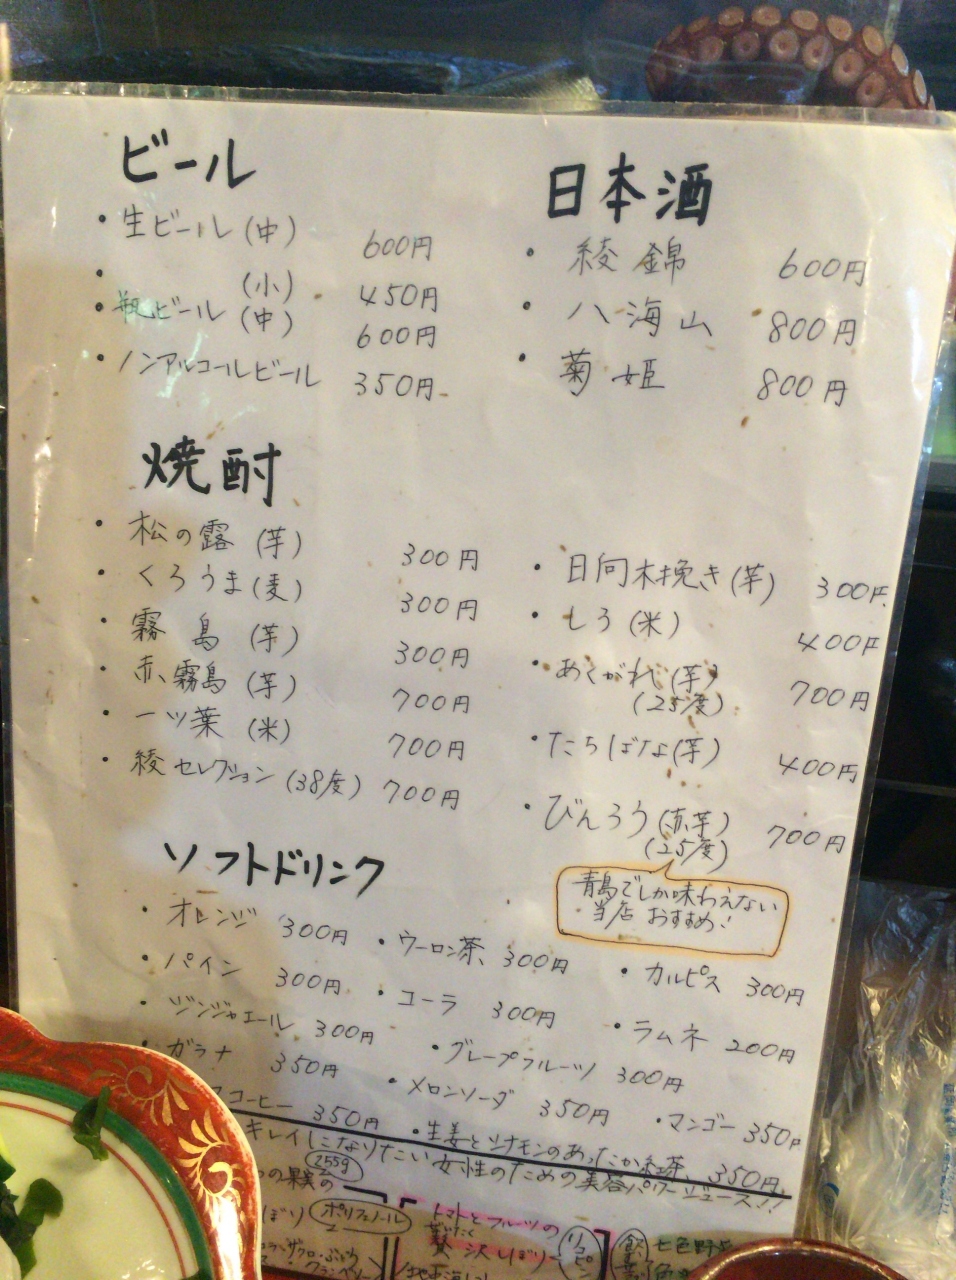 ビール
・生ビール(中) 600円
・ (小) 450円
・瓶ビール(中) 600円
・ノンアルコールビール 350円
日本酒
・綾錦 600円
・八海山 800円
・菊姫 800円
焼酎
・松の露(芋) 300円
・くろうま(麦) 300円
・霧島(芋) 300円
・赤霧島(芋) 700円
・一ツ葉(米) 700円
・綾セレクション(38度) 700円
・日向木挽き(芋) 300円
・しろ(米) 400円
・あくがれ(芋) 700円
(25度)
・たちばな(芋) 400円
・びんろう(赤芋) 700円
(25度)
青島でしか味わえない
当店おすすめ!
ソフトドリンク
・オレンジ 300円
・ウーロン茶 300円
・カルピス 300円
・パイン 300円
・コーラ 300円
・ラムネ 200円
・ジンジャエール 300円
・グレープフルーツ 300円
・ガラナ 350円
・メロンソーダ 350円
・マンゴー 350円
コーヒー 350円
・生姜とシナモンのあったか紅茶 350円
キレイになりたい女性のための美容パワージュース!!
の果実の
255g
しぼり
ポリフェノール
ザクロ・ぶどう
クランベリー
トマトとフルーツの
贅沢しぼり
リコピン
七色野菜